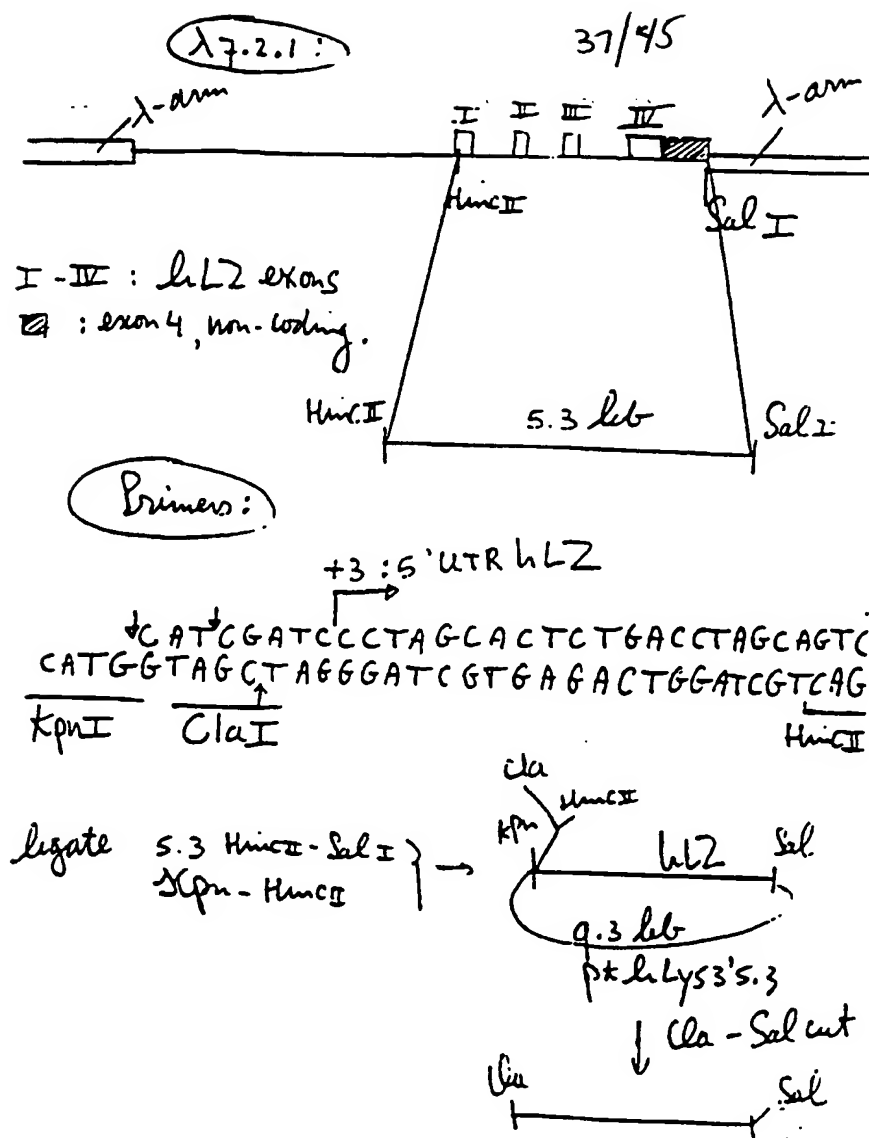 λ7.2.1:
37/45
λ-arm
I II III IV
λ-arm
HincII
Sal I
I-IV : hLZ exons
: exon 4, non-coding.
HincII 5.3 kb Sal I
Primers:
+3 : 5' UTR hLZ
CATCGATCCCTAGCACTCTGACCTAGCAGTC
CATGGTAGCTAGGGATCGTGAGACTGGATCGTCAG
KpnI ClaI HincII
Cla
HincII
Kpn hLZ Sal
ligate 5.3 HincII-Sal I
Kpn-HincII
9.3 kb
Cla-Sal cut
Cla Sal